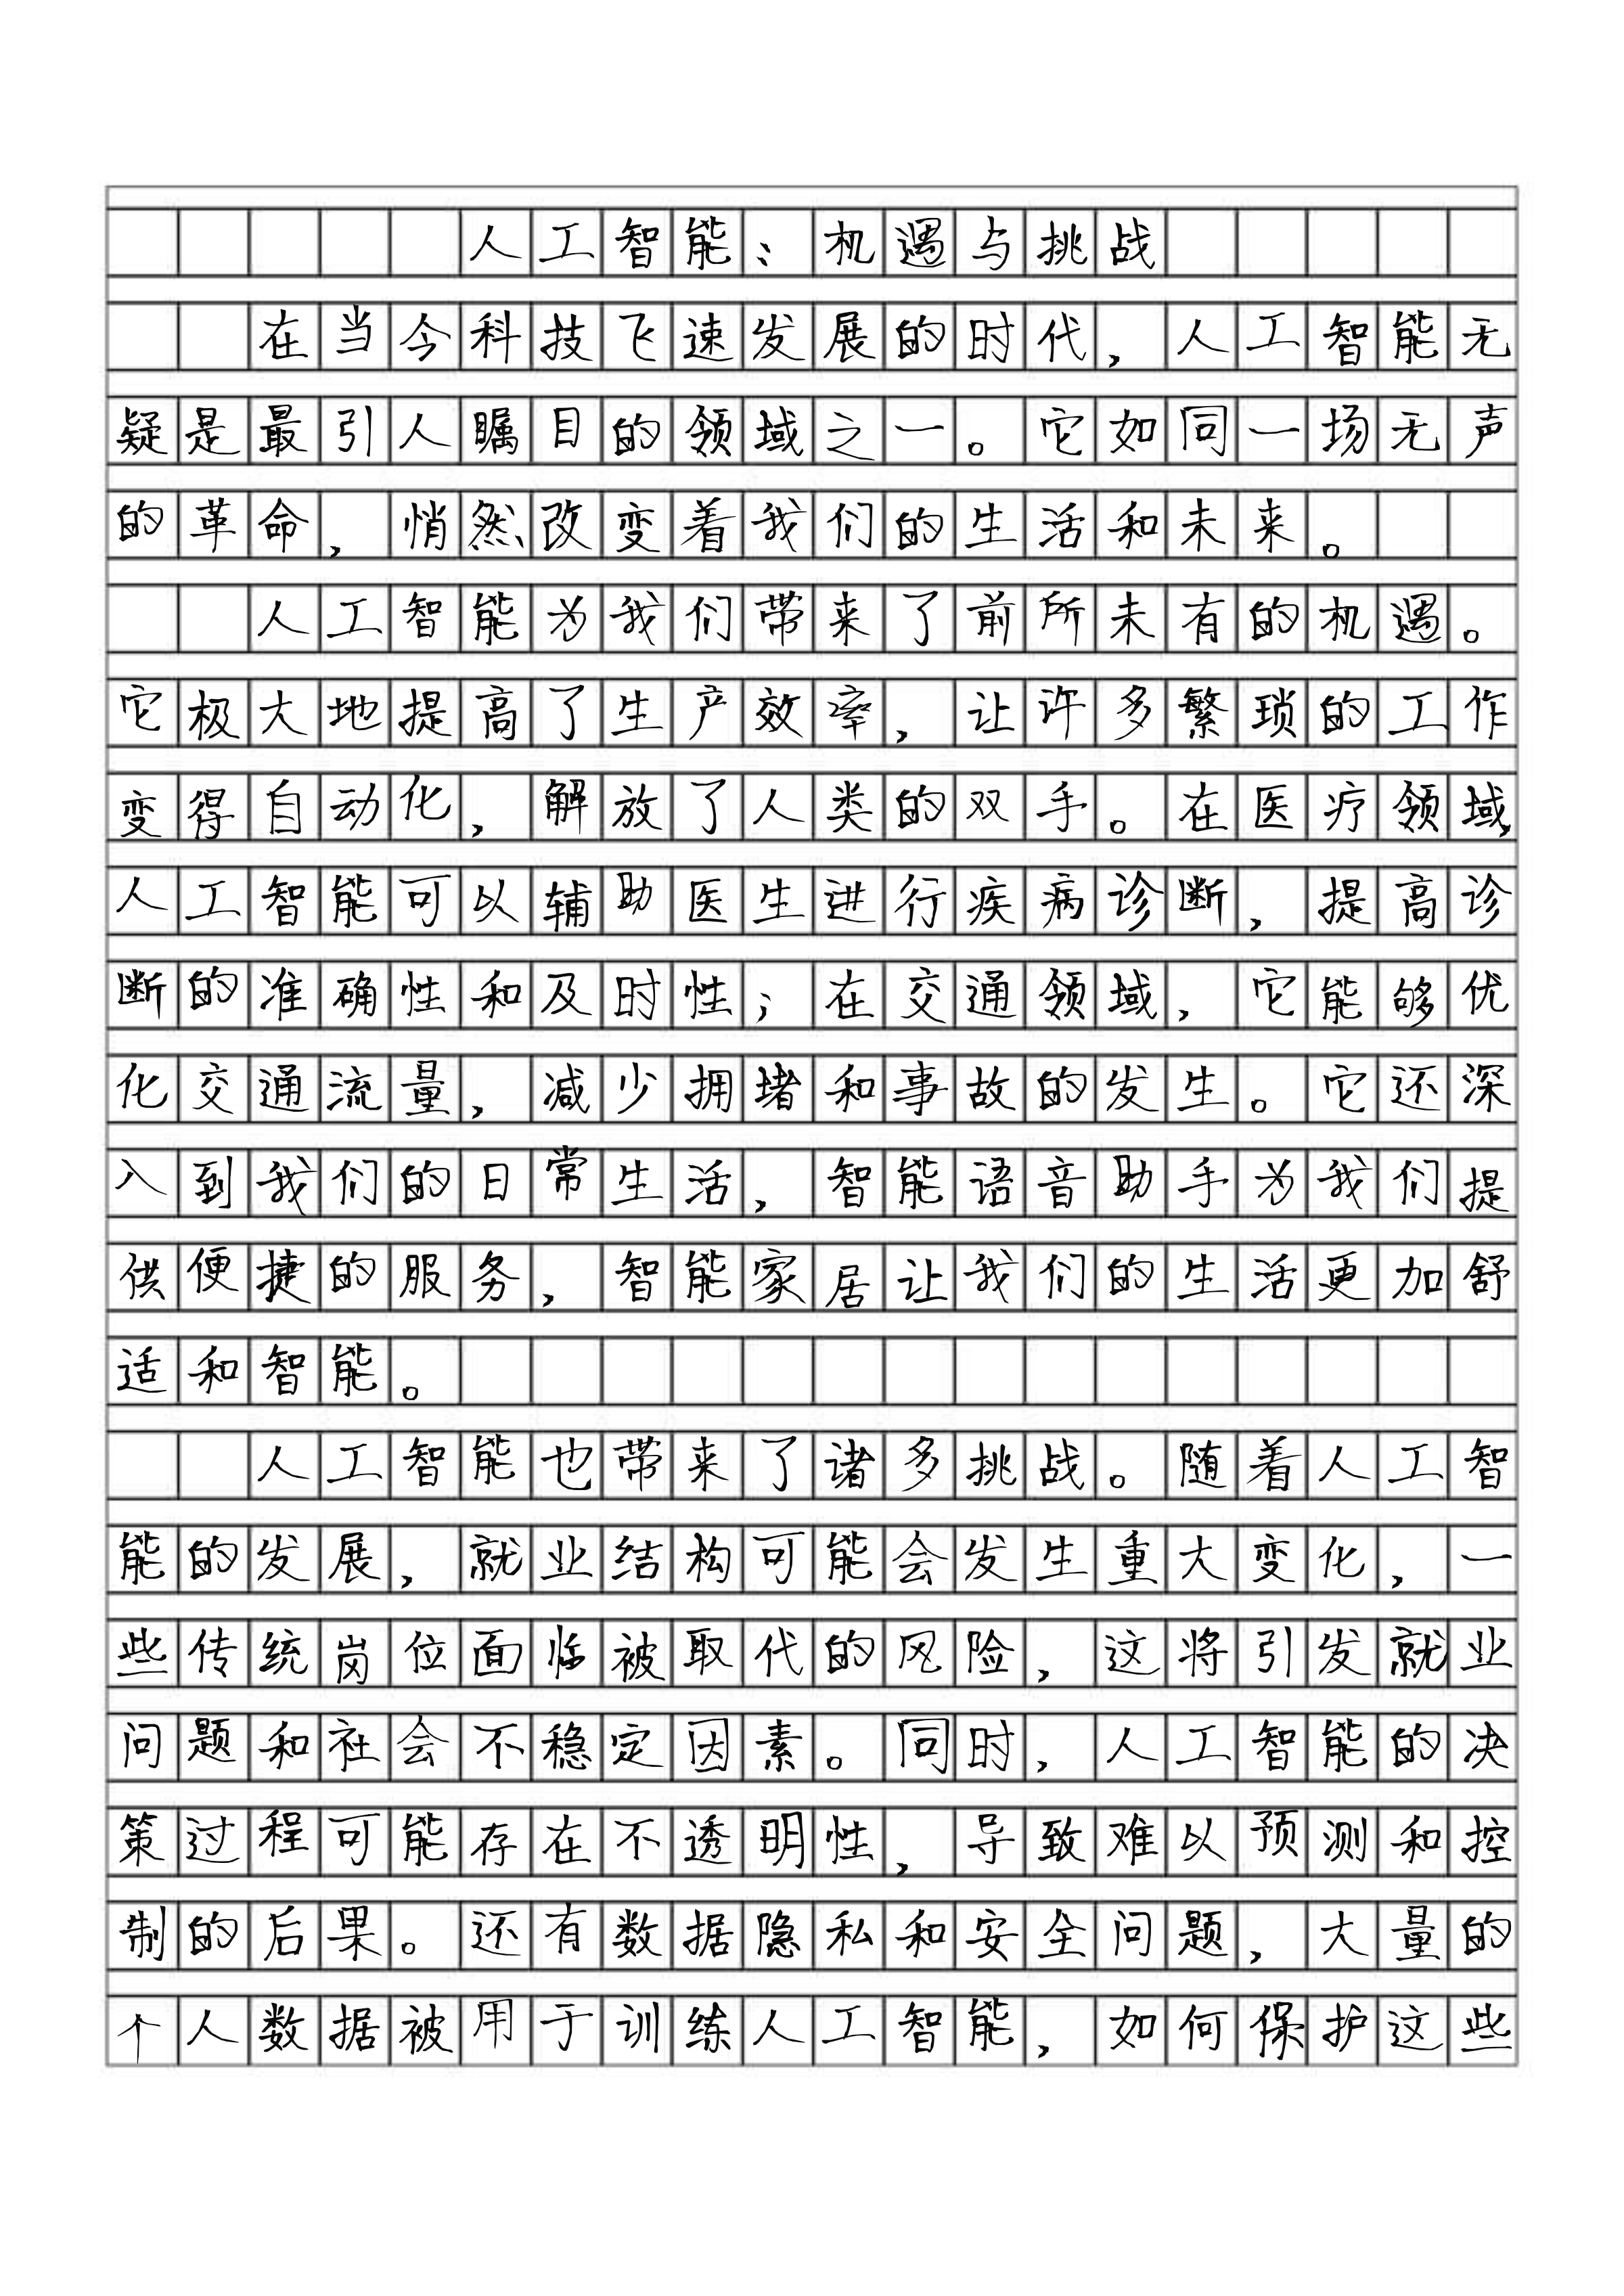 人工智能：机遇与挑战
在当今科技飞速发展的时代，人工智能无
疑是最引人瞩目的领域之一。它如同一场无声
的革命，悄然改变着我们的生活和未来。
人工智能为我们带来了前所未有的机遇。
它极大地提高了生产效率，让许多繁琐的工作
变得自动化，解放了人类的双手。在医疗领域，
人工智能可以辅助医生进行疾病诊断，提高诊
断的准确性和及时性；在交通领域，它能够优
化交通流量，减少拥堵和事故的发生。它还深
入到我们的日常生活，智能语音助手为我们提
供便捷的服务，智能家居让我们的生活更加舒
适和智能。
人工智能也带来了诸多挑战。随着人工智
能的发展，就业结构可能会发生重大变化，一
些传统岗位面临被取代的风险，这将引发就业
问题和社会不稳定因素。同时，人工智能的决
策过程可能存在不透明性，导致难以预测和控
制的后果。还有数据隐私和安全问题，大量的
个人数据被用于训练人工智能，如何保护这些